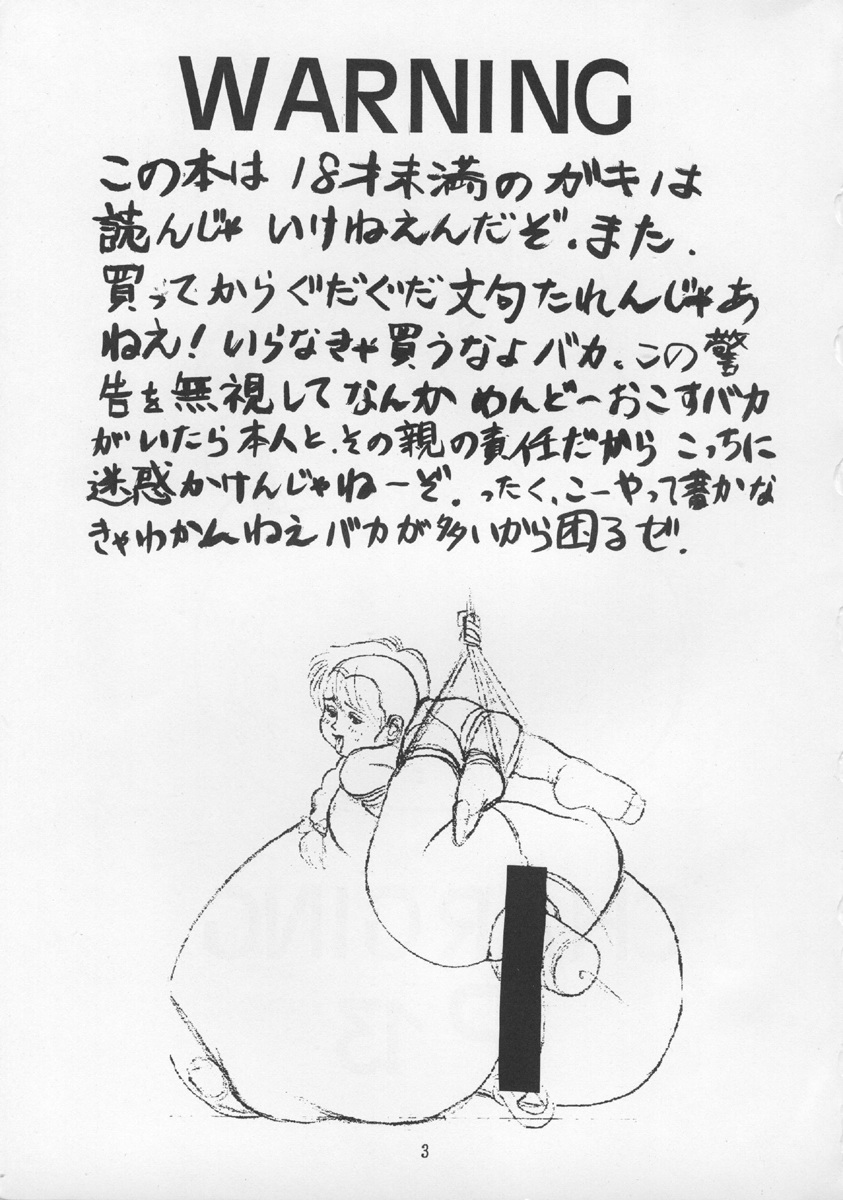 WARNING
この本は18才未満のガキは
読んじゃいけねえんだぞ.また.
買ってからぐだぐだ文句たれんじゃあ
ねえ!いらなきゃ買うなよバカ、この警
告を無視してなんかめんどーおこすバカ
がいたら本人と、その親の責任だからこっちに
迷惑かけんじゃねーぞ.ったく、こーやって書かな
きゃわかんねえバカが多いから困るゼ.
3